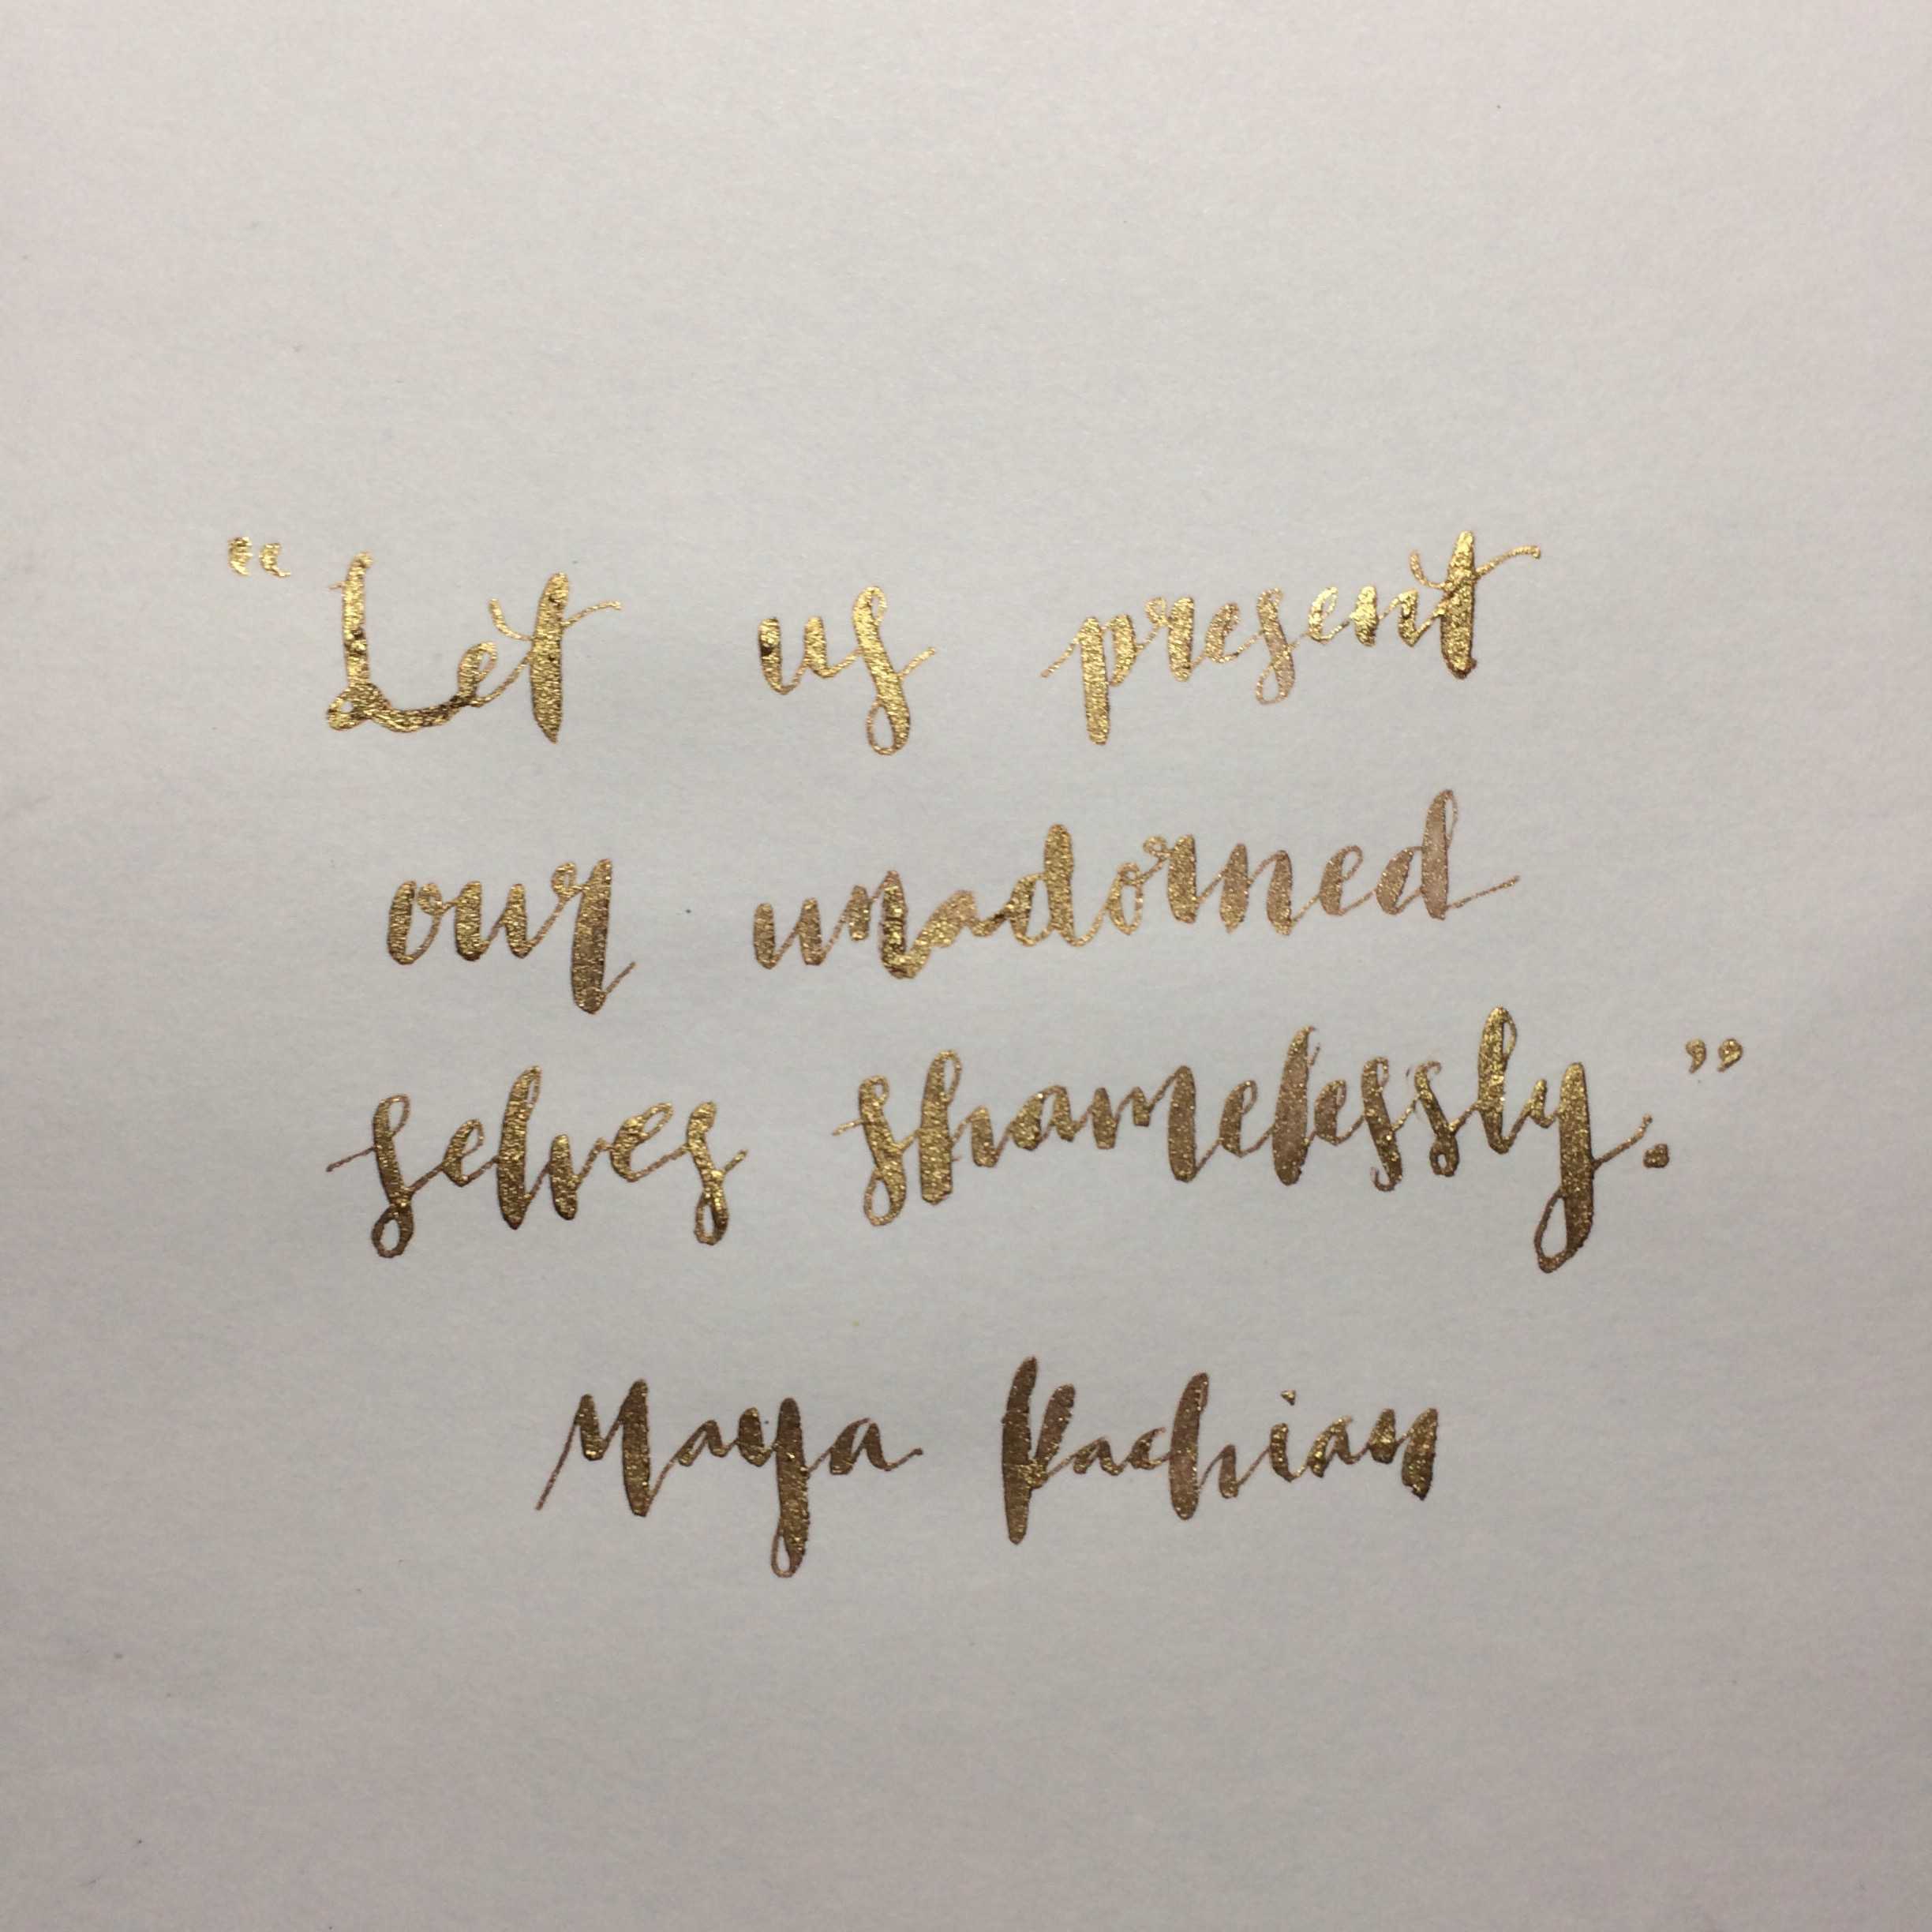 “Let us present
our unadorned
selves shamelessly.”
Maya